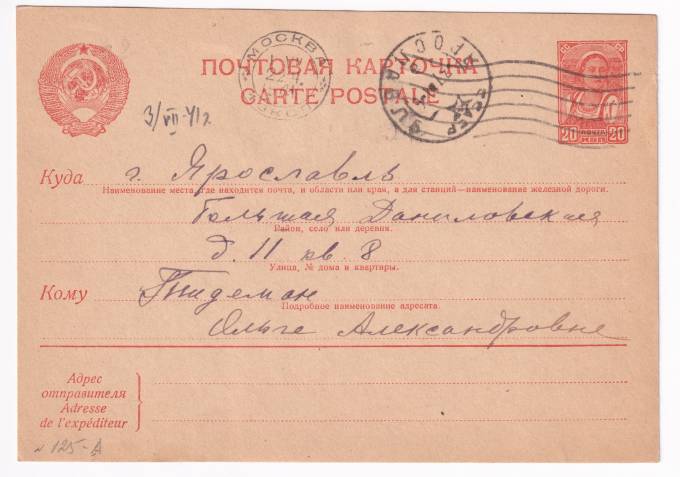 МОСКВА
ПОЧТОВАЯ КАРТОЧКА
CARTE POSTALE
3/VII-41г
20 ПОЧТА 20
КОП
Куда г. Ярославль
Наименование места, где находится почта, и области или края, а для станций—наименование железной дороги.
Большая Даниловская
Район, село или деревня.
д. 11 кв. 8
Улица, № дома и квартиры.
Кому Тидеман
Подробное наименование адресата.
Ольге Александровне
Адрес
отправителя
Adresse
de l'expéditeur
125-А